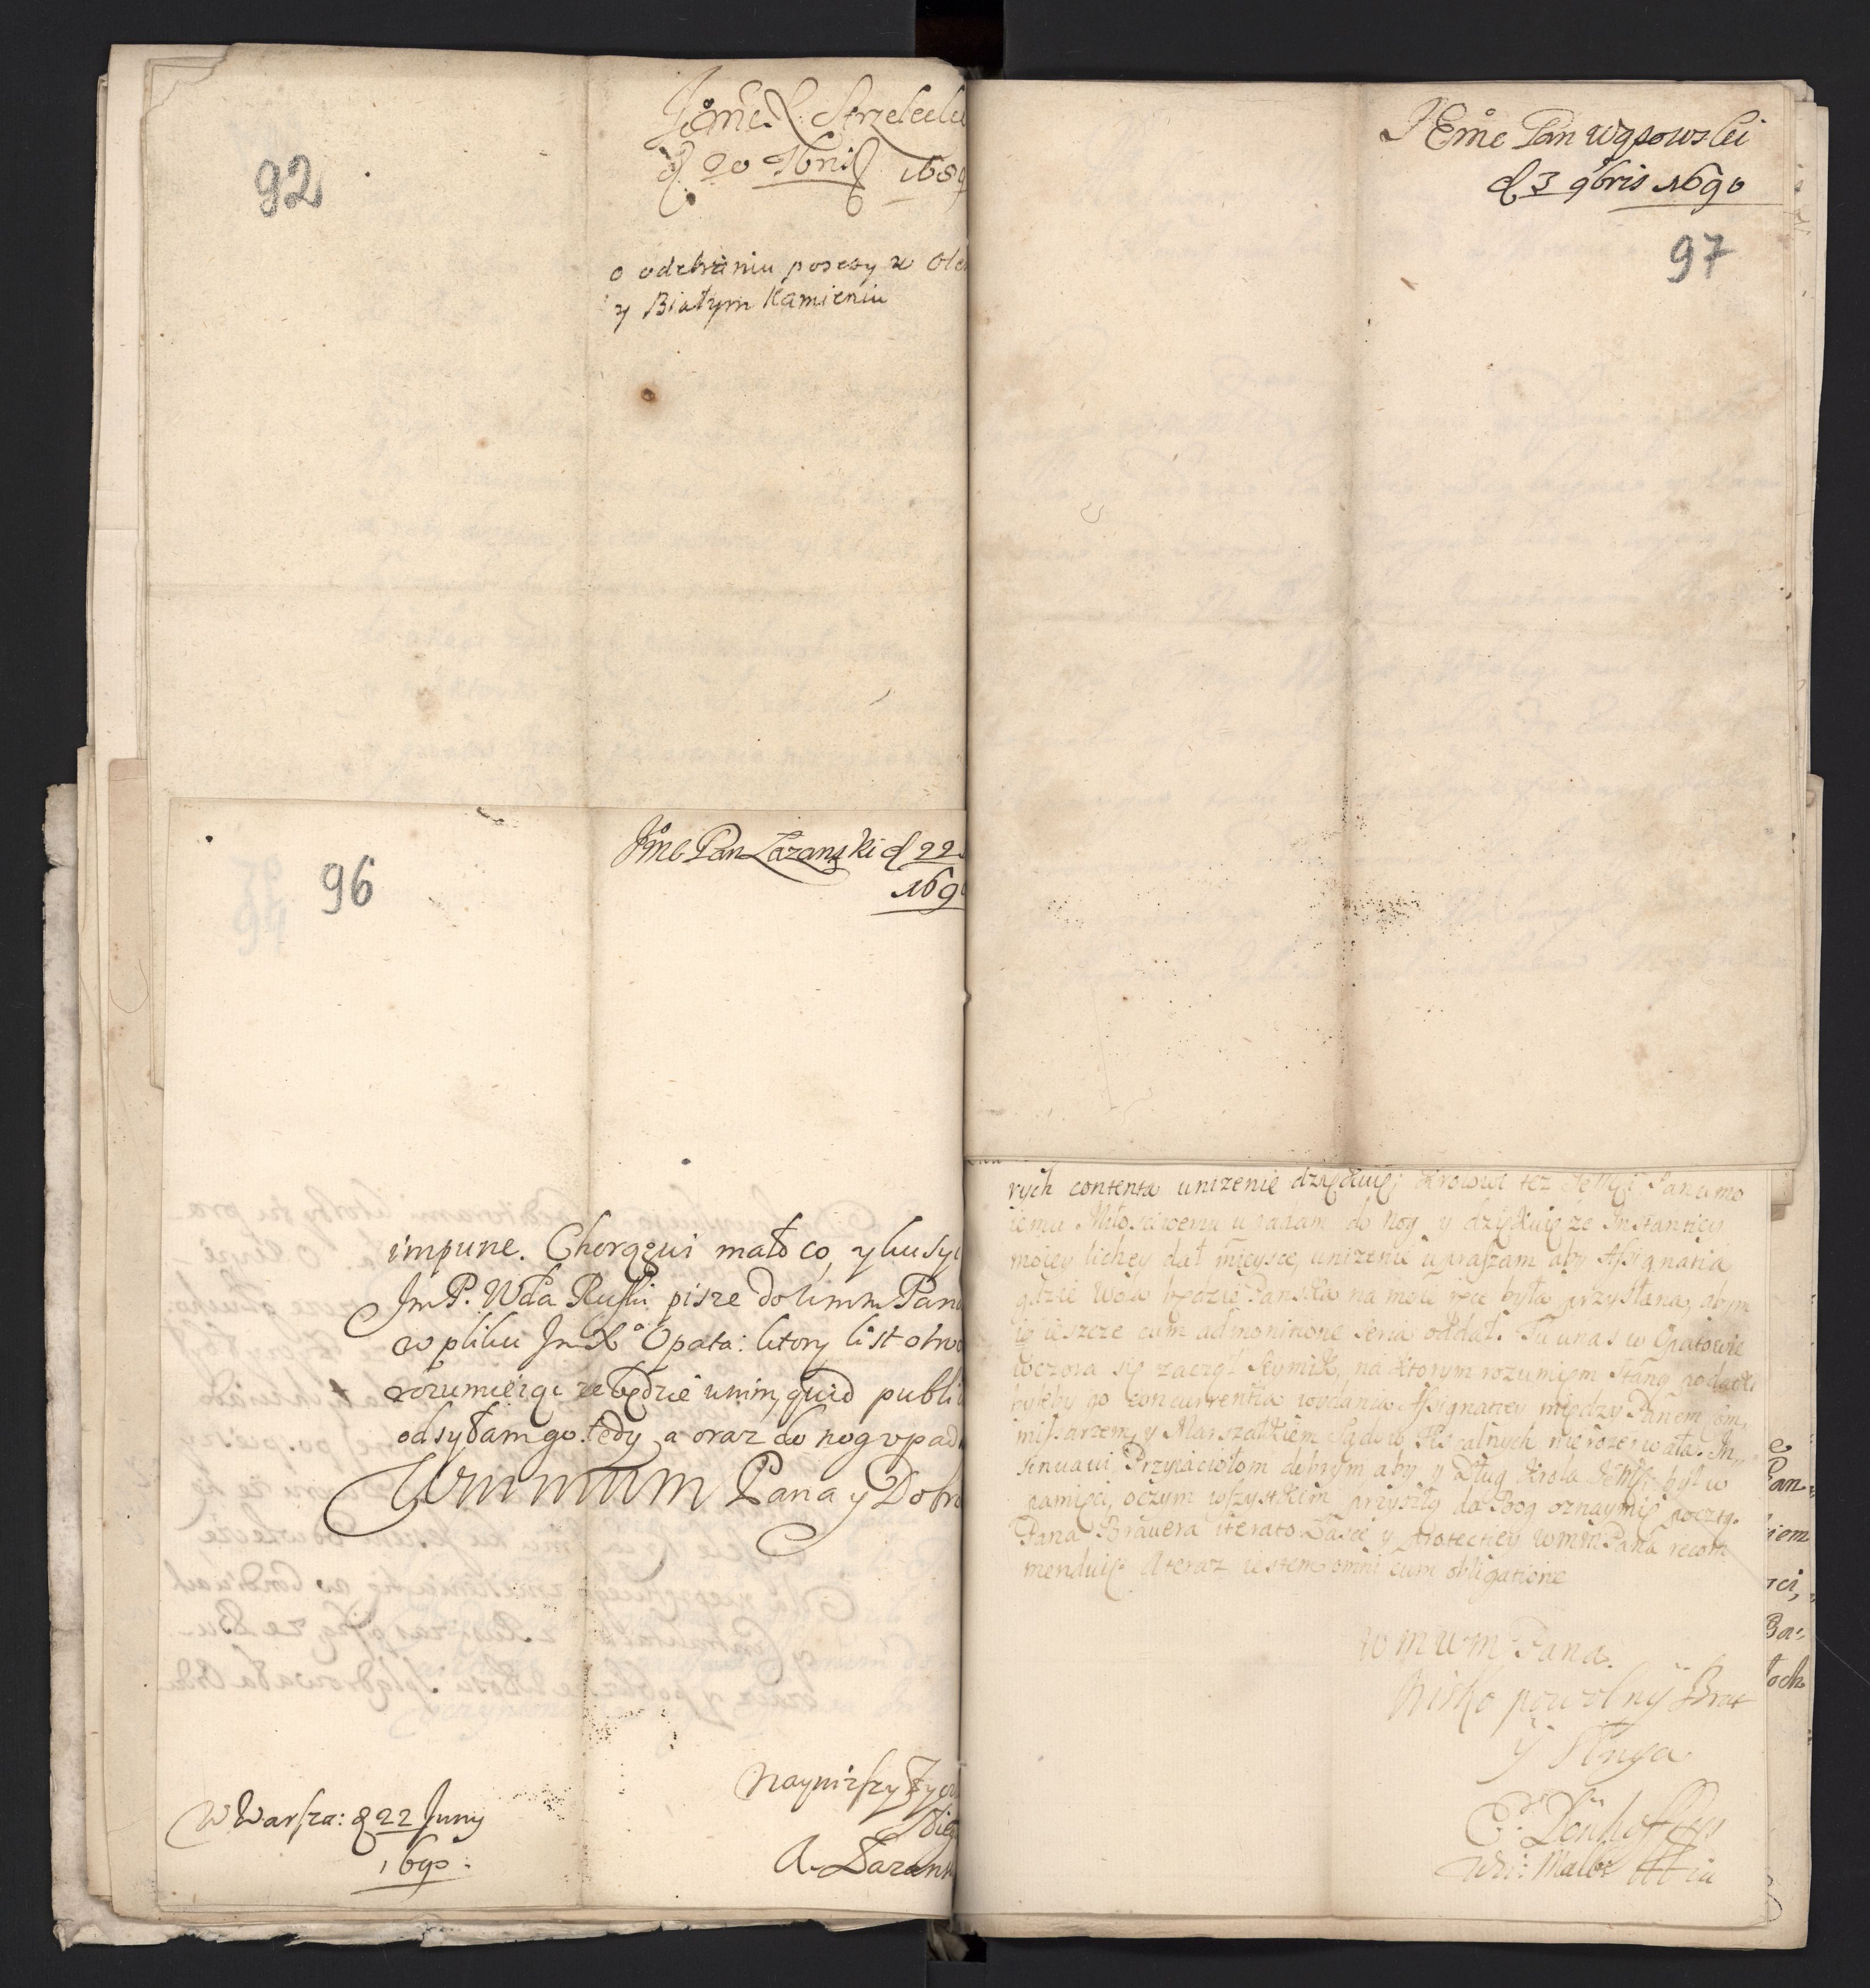 92
Jo̊mć X. Strzelecki
d. 20 7bris 168
o odebraniu possesy w Ole
y Białym Kamieniu
96
Jm̊c Pan Łazanski d 22
169
impune. Chorągwi mało co, y
Jm P. Wda Ruski pisze do Wmm Pana
w pliku Jm X° Opata: ktory list otwo
rozumieiąc ze będzie w nim, quid publi
odsyłam go tedy, a oraz do nog vpad
Wmmmm Pana y Dobr
W Warsza: d 22 Juny
1690.
Naynizszy
A. Łazans
JEm̊c Pan Wąsowski
d 3 9bris 1690
97
rych contenta unizenie dziękuię, Krolowi tez Je Mści Panu mo
iemu Miłosciwemu upadam do nog, y dziękuię ze Instantiey
moiey lichey dał mieysce, unizenie upraszam aby Assignatia
gdzie Wola będzie Pańska na moie ręce była przysłana, abym
ią ieszcze cum admonitione seria oddał. Tu u nas w Opatowie
wczora się zaczął Seymik, na ktorym rozumiem staną podatki
byleby go concurrentia wydania Assignatiey między Panem Com,,
missarzem, y Marszałkiem Sądow Fiskalnych nie rozerwała. In,,
sinuavi Przyiaciołom dobrym aby y Dług Krola JeMści był w
pamięci, o czym wszystkiem przyszłą da Bog oznaymię pocztą.
Pana Brauera iterato Łasce y protectiey WmmPana recom
menduię. A teraz iestem omni cum obligatione
WmmWm Pana.
Nisko powolny Brat
y Sługa
E. Dönhoff
an
iem
ci,
Ba
och